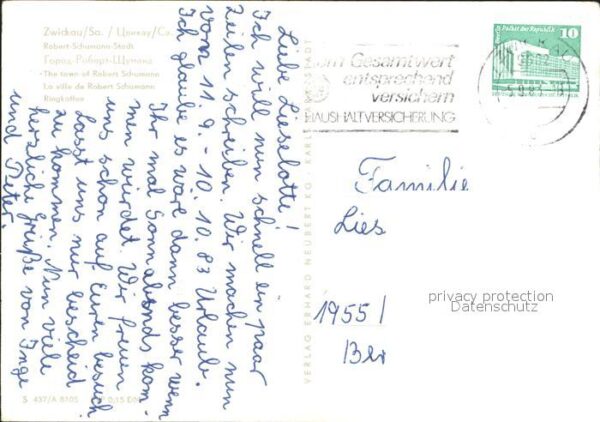 Zwickau/Sa. / Цвикау/Са.
Robert-Schumann-Stadt
Город Роберт-Шумана
The town of Robert Schumann
La ville de Robert Schumann
Ringkaffee
Liebe Lieselotte!
Ich will nun schnell ein paar
Zeilen schreiben. Wir machen nun
vom 11.9. - 10.10.83 Urlaub.
Ich glaube es wäre dann besser wenn
Ihr mal Sonnabends kom-
men würdet. Wir freuen
uns schon auf Euren Besuch
Lasst uns nur bescheid
zu kommen. Nun viele
herzliche Grüße von Inge
und Peter.
S 437/A 8105 0,15
VERLAG ERHARD NEUBERT KG · KARL-MARX-STADT
zum Gesamtwert
entsprechend
versichern
HAUSHALTVERSICHERUNG
5.9.83
Palast der Republik 10
DDR
Familie
Lies
1955/
Ber
privacy protection
Datenschutz